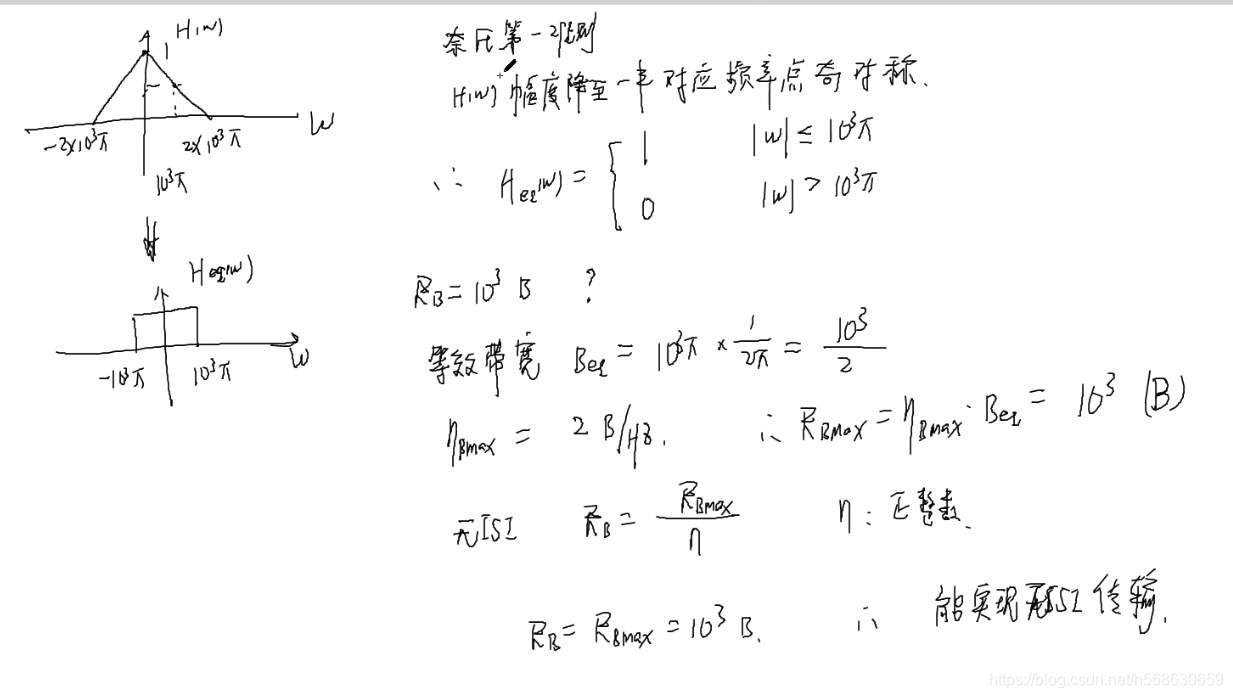 H(w)
1
-2×10³π 2×10³π W
10³π
Heq(w)
-10³π 10³π W
奈氏第一准则
H(w)幅度降至一半对应频率点奇对称.
∴ Heq(w) = { 1 |w| ≤ 10³π
0 |w| > 10³π
RB = 10³ B ?
等效带宽 Beq = 10³π × 1/2π = 10³/2
ηBmax = 2 B/Hz. ∴ RBmax = ηBmax · Beq = 10³ (B)
无ISI RB = RBmax/n n: 正整数.
RB = RBmax = 10³ B. ∴ 能实现无ISI传输.
https://blog.csdn.net/h568630659